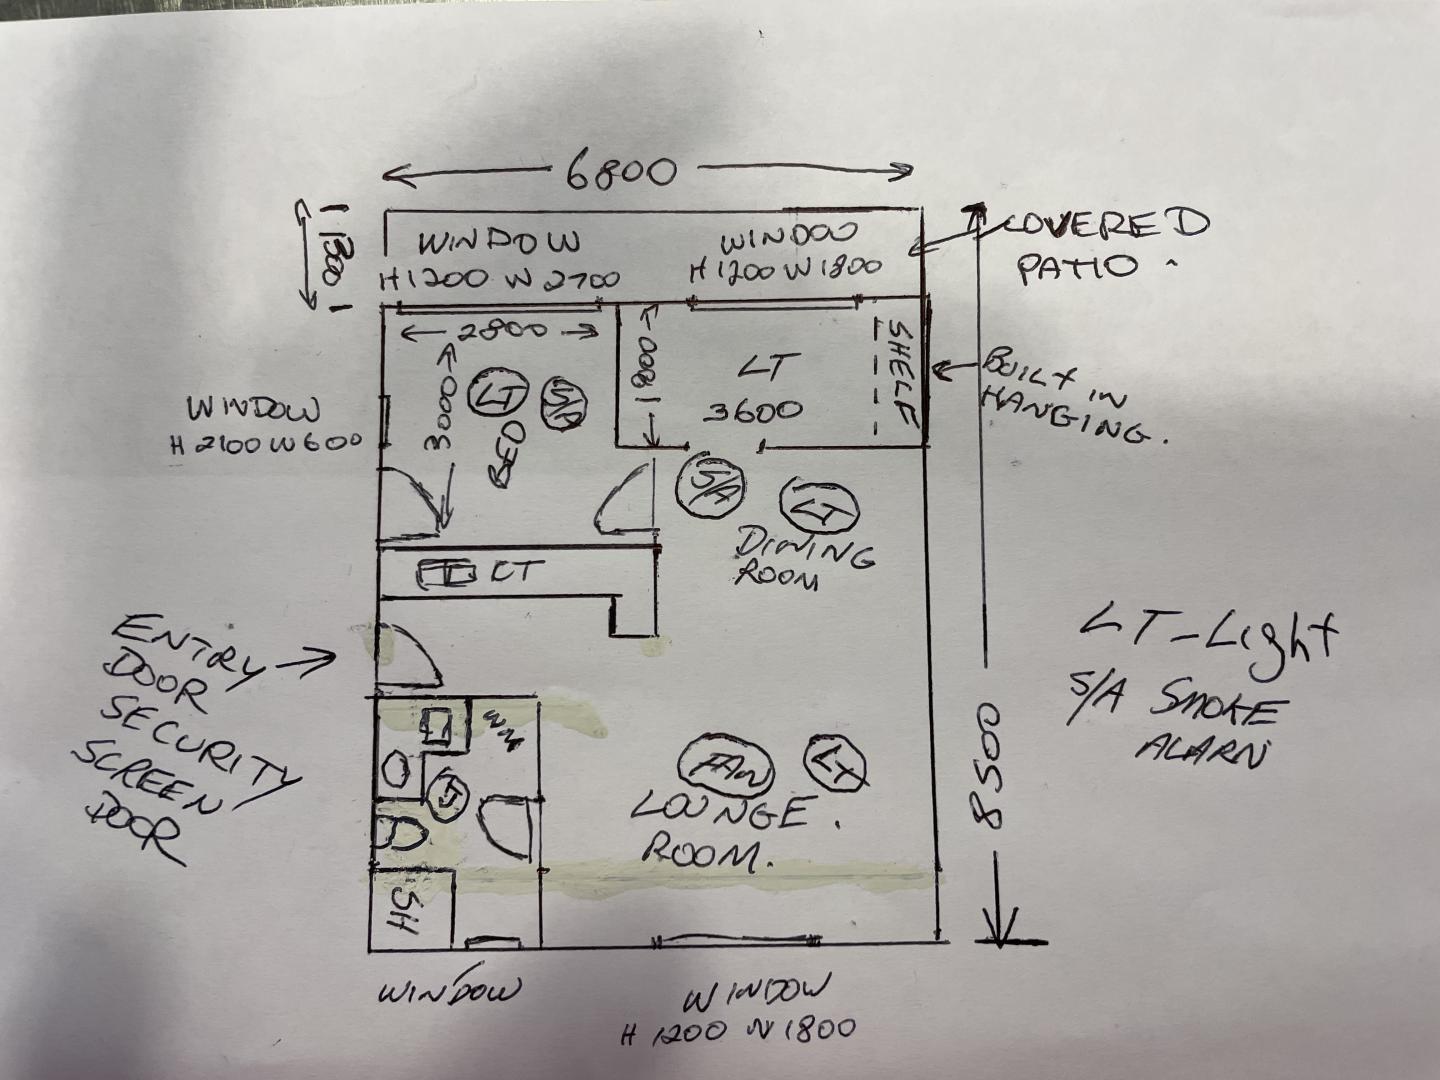 6800
1300
WINDOW
H1200 W2700
WINDOW
H1200 W1800
COVERED
PATIO.
2800
3000
LT
S/A
BED
1800
LT
3600
SHELF
BUILT IN
HANGING.
WINDOW
H2100 W600
S/A
LT
DINING
ROOM
LT
ENTRY
DOOR
SECURITY
SCREEN
DOOR
WM
LT
SH
FAN
LT
LOUNGE.
ROOM.
8500
LT-Light
S/A SMOKE
ALARN
WINDOW
WINDOW
H1200 W1800